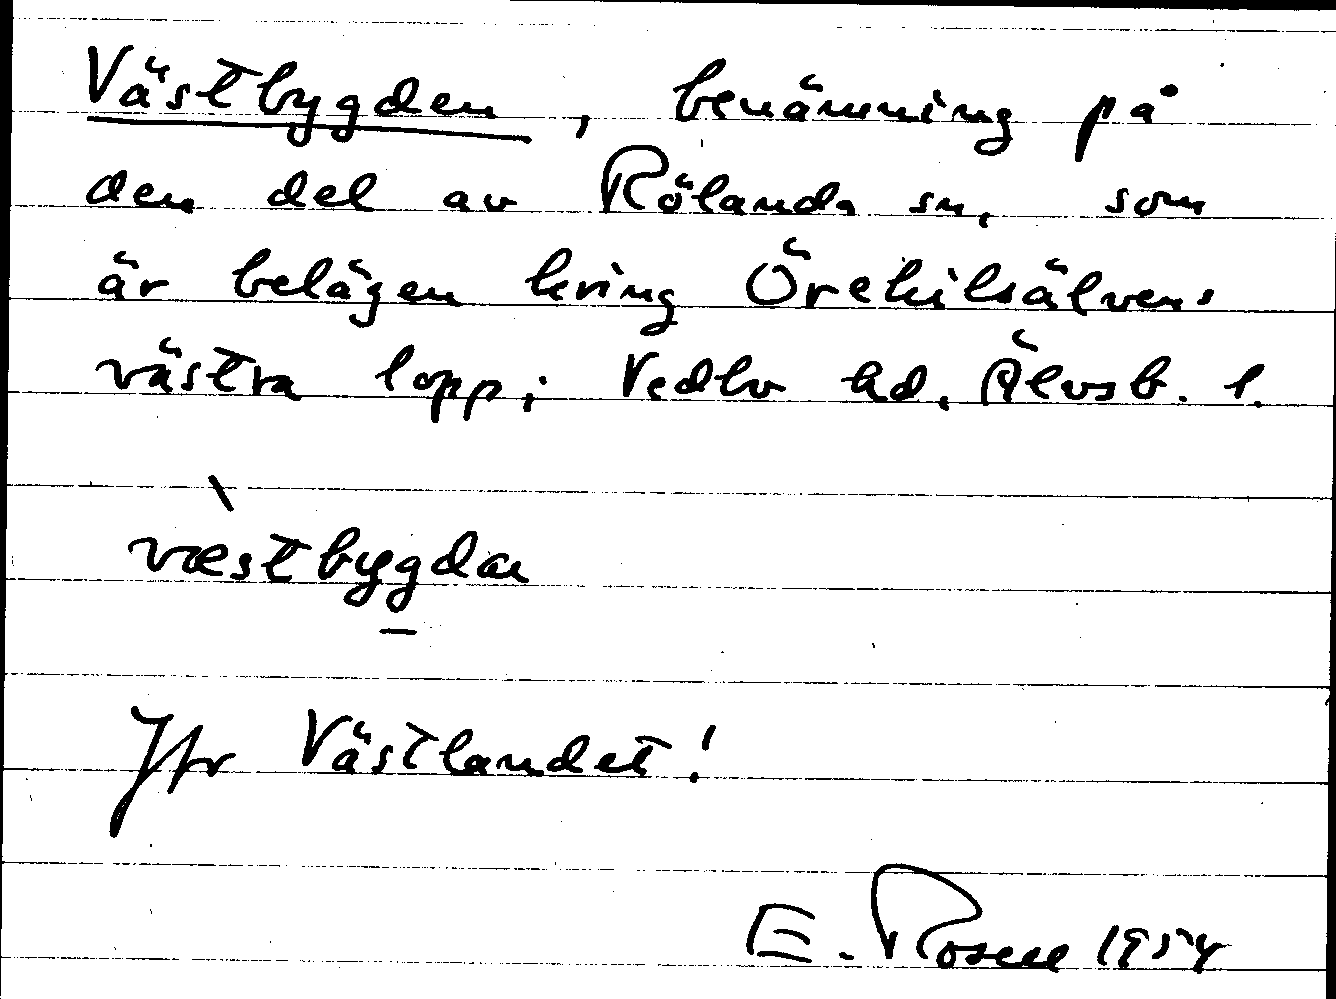 Västbygden, benämning på
den del av Rölanda sn, som
är belägen kring Örekilsälvens
västra lopp; Vedbo hd, Älvsb. l.
væ̀stbygdan
Jfr Västlandet!
E. Rosell 1954